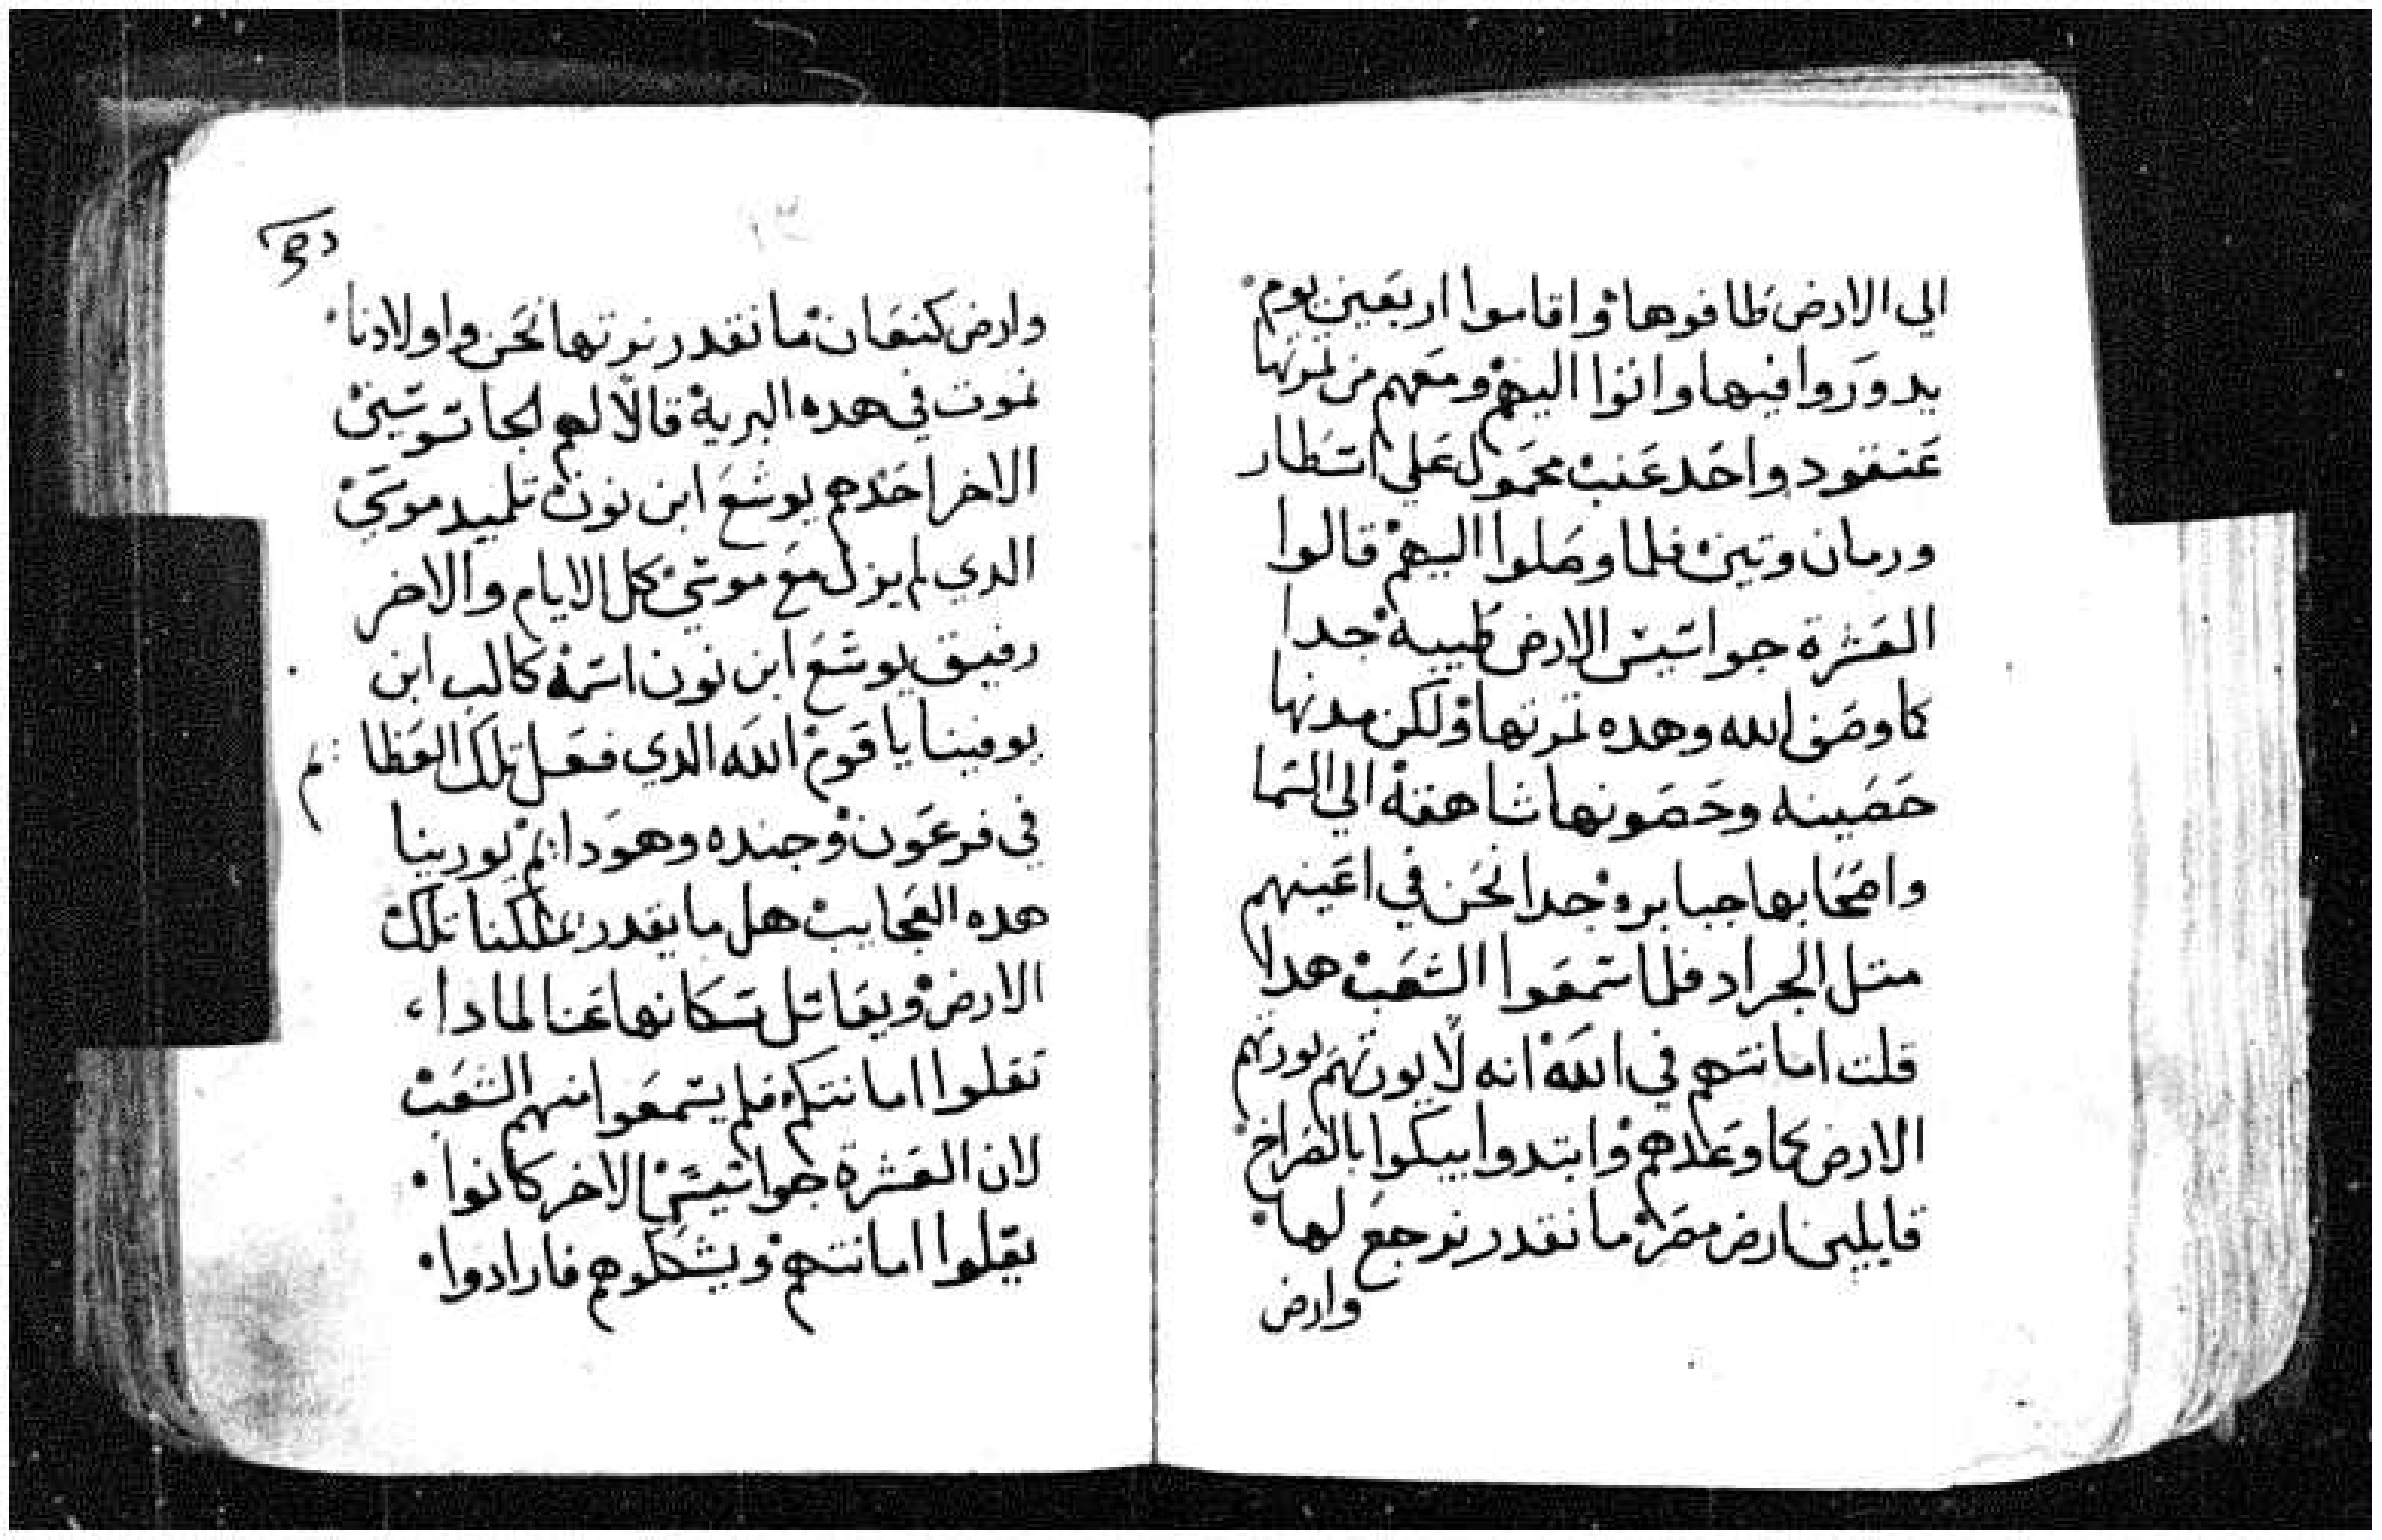 الي الارض طافوها واقاموا اربعين يوم
يدوروا فيها واتوا اليهم ومعهم من تمرتها
عنقود واحد عنب محمول علي اسطار
ورمان وتين فلما وصلوا اليهم قالوا
العشرة جواسيس الارض طيبه جدا
كما وصف الله وهده تمرتها ولكن مدنها
حصينه وحصونها شاهقة الي السما
واصحابها جبابره جدا نحن في اعينهم
متل الجراد فلما سمعوا الشعب هدا
قلت امانتهم في الله انه لا يورتهم يورتهم
الارض كما وعدهم وابتدوا يبكوا بالصراخ
قايلين ارض مصر ما نقدر نرجع لها
وارض
وارض كنعان ما نقدر نرتها نحن واولادنا
نموت في هده البرية قالا لهم الجاسوسين
الاخر احدهم يوشع ابن نون تلميد موسي
الدي لم يزل مع موسي كل الايام والاخر
رفيق يوشع ابن نون اسمه كالب ابن
يوفينا يا قوم الله الدي فعل تلك العظايم
في فرعون وجنده وهو دايم يورينا
هده العجايب هل ما يقدر يملكنا تلك
الارض ويقاتل سكانها عنا لمادا
تقلوا امانتكم فلم يسمعوا منهم الشعب
لان العشرة جواسيس الاخر كانوا
يقلوا امانتهم ويشكلوهم فارادوا